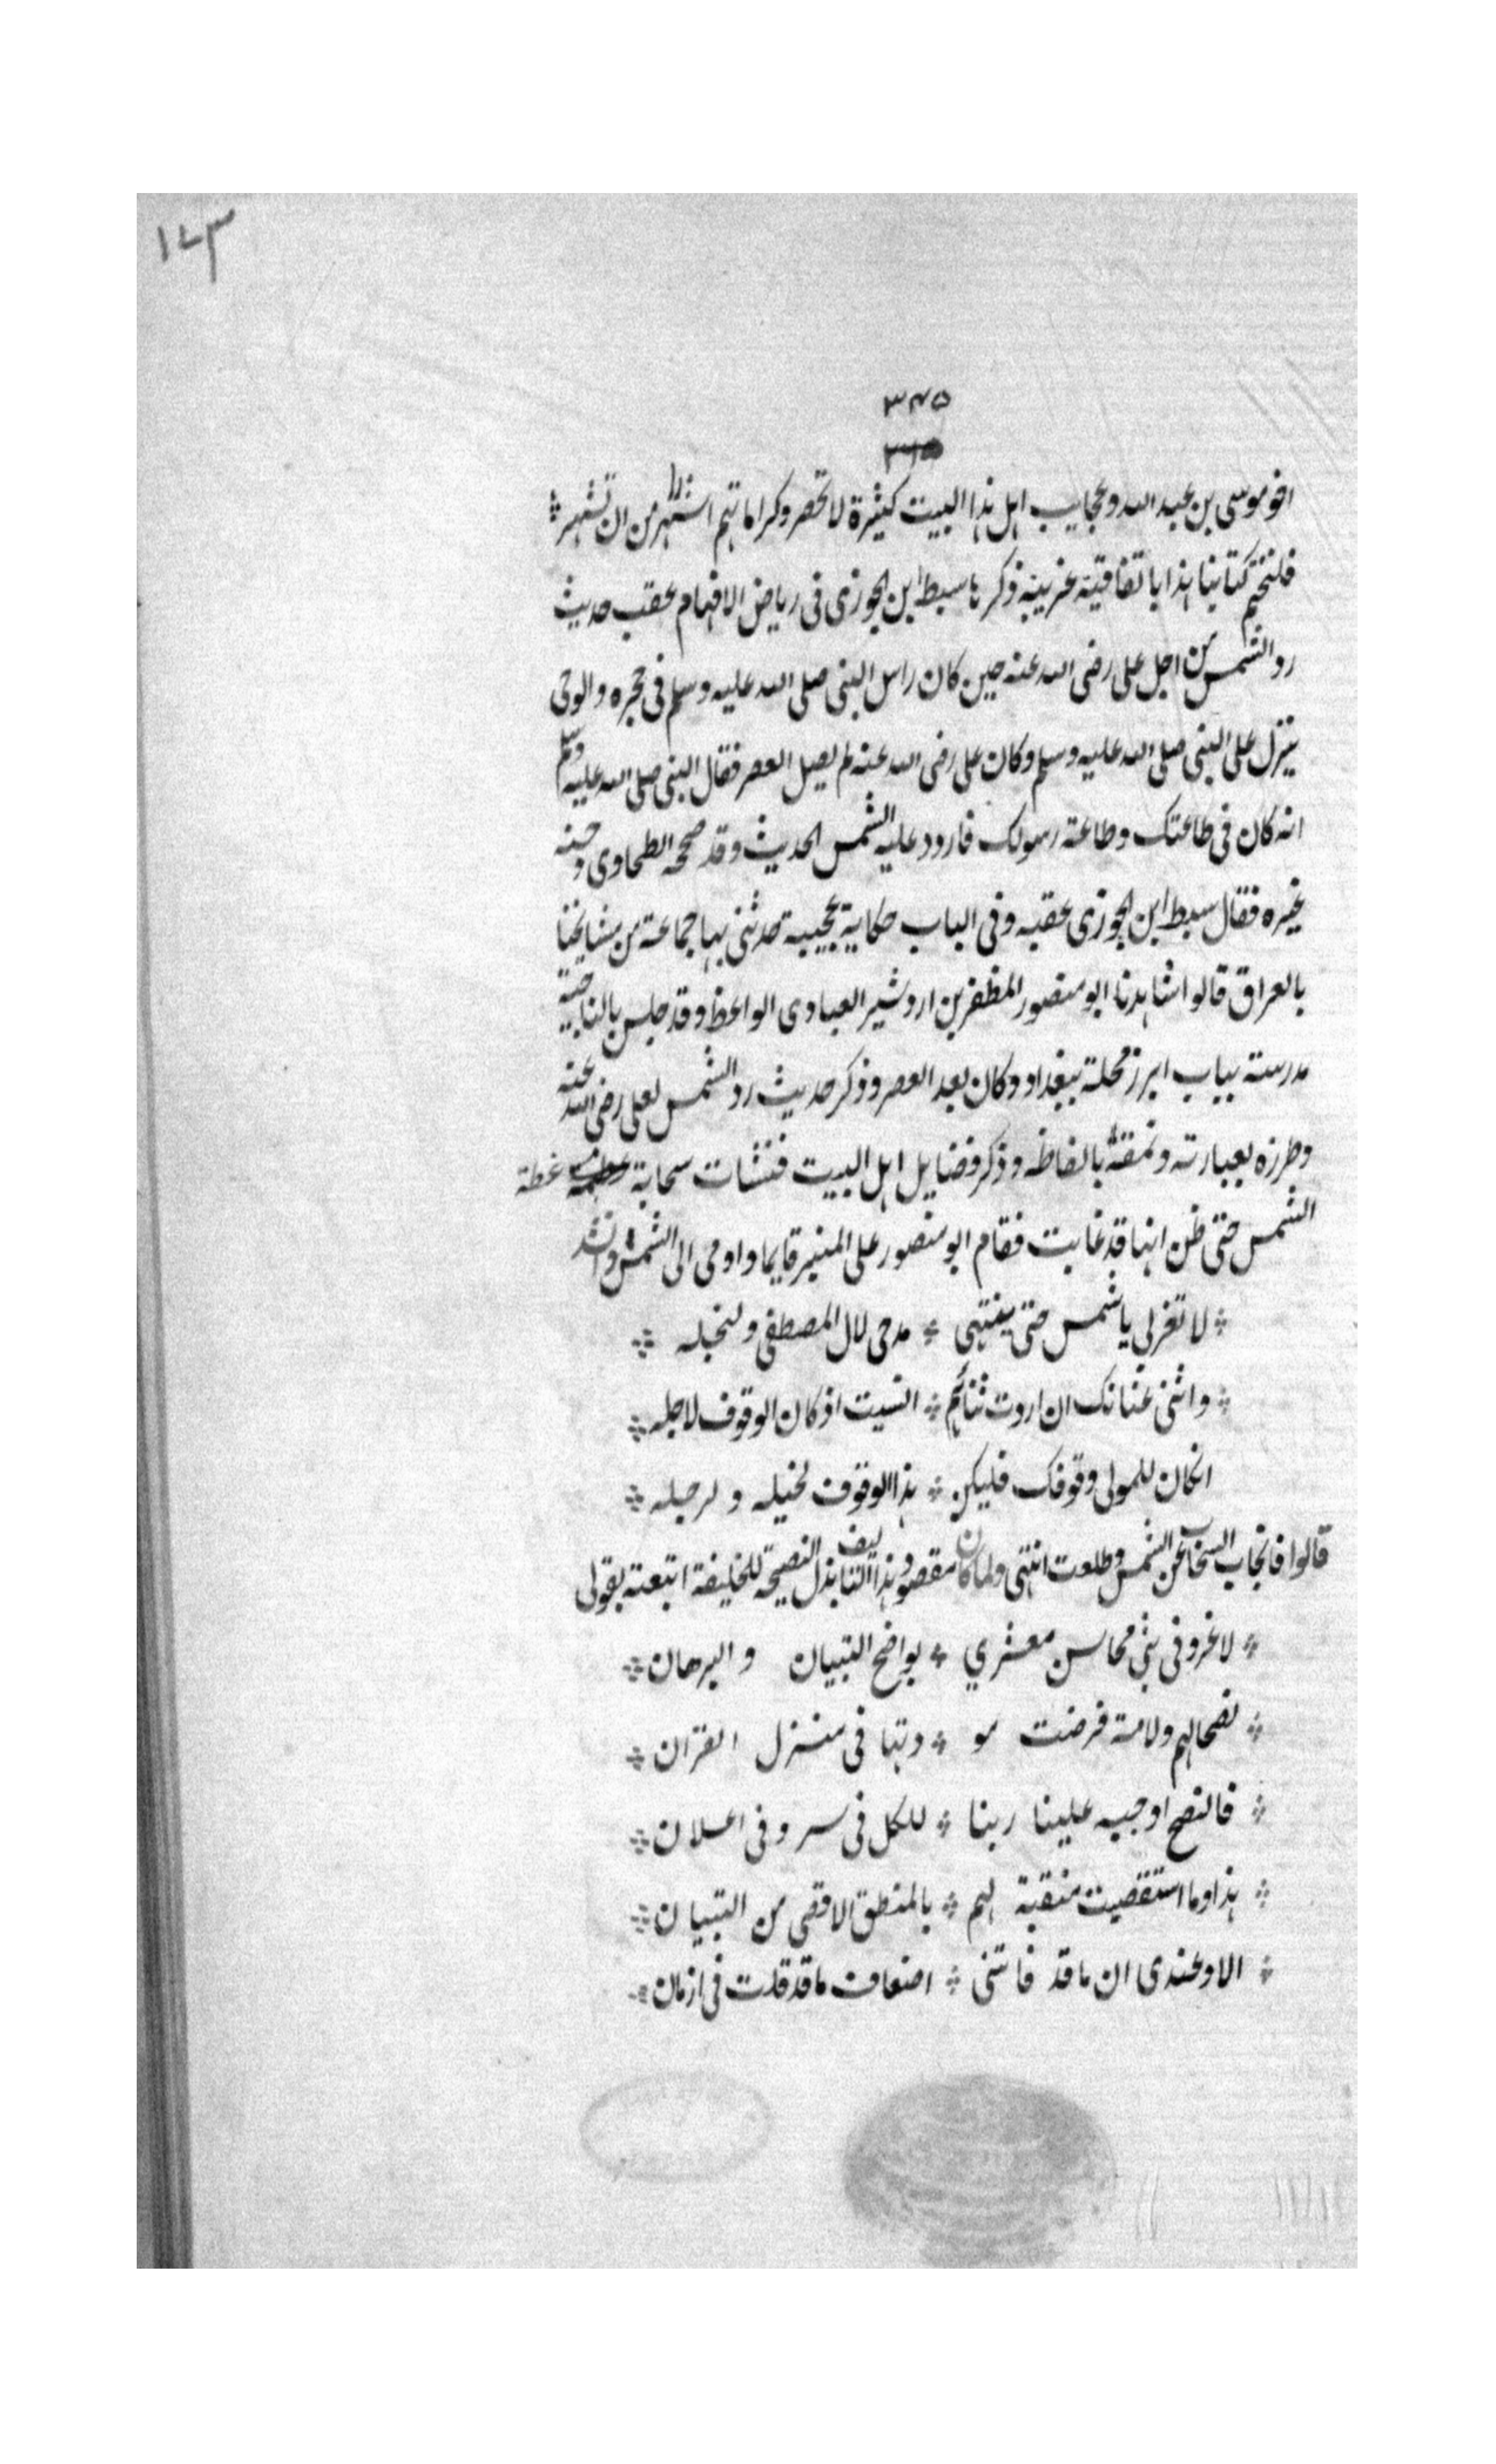 ١٤٣
٣٤٥
اخو موسى بن عبد الله وعجايب اهل هذا البيت كثيرة لا تحصر وكراماتهم اشهر من ان تشهر
فلنختم كتابنا هذا باتفاقية غريبة ذكرها سبط ابن الجوزى فى رياض الافهام عقب حديث
رد الشمس من اجل على رضى الله عنه حين كان راس النبى صلى الله عليه وسلم فى حجره والوحى
ينزل على النبى صلى الله عليه وسلم وكان على رضى الله عنه لم يصل العصر فقال النبى صلى الله عليه وسلم
انه كان فى طاعتك وطاعة رسولك فاردد عليه الشمس الحديث وقد صححه الطحاوى وحسنه
غيره فقال سبط ابن الجوزى عقبه وفى الباب حكاية عجيبة حدثنى بها جماعة من مشايخنا
بالعراق قالوا شاهدنا ابو منصور المظفر بن اردشير العبادى الواعظ وقد جلس بالناجية
مدرسة بباب ابرز محلة ببغداد وكان بعد العصر وذكر حديث رد الشمس لعلى رضى الله عنه
وطرزه بعبارته ونمقه بالفاظه وذكر فضايل اهل البيت فنشات سحابة غطة
الشمس حتى ظن انها قد غابت فقام ابو منصور على المنبر قايما واومى الى الشمس وانشد
لا تغربى يا شمس حتى ينتهى ٭ مدحى لال المصطفى ولنجله
واثنى عنانك ان اردت ثنائهم ٭ انسيت اذ كان الوقوف لاجله
انكان للمولى وقوفك فليكن ٭ هذا الوقوف لخيله ولرجله
قالوا فانجاب السحاب عن الشمس وطلعت انتهى ولما كان مقصود هذا التاليف بذل النصيحة للخليفة اتبعته بقولى
لا غرو فى بثى محاسن معشري ٭ بواضح التبيان والبرهان
نصحا لهم ولامة فرضت مو ٭ دتها فى منزل القران
فالنصح اوجبه علينا ربنا ٭ للكل فى سر وفى اعلان
هذا وما استقصيت منقبة لهم ٭ بالمنطق الاقصى من التبيان
الا وعندى ان ما قد فاتنى ٭ اضعاف ما قد قلت فى ازمان